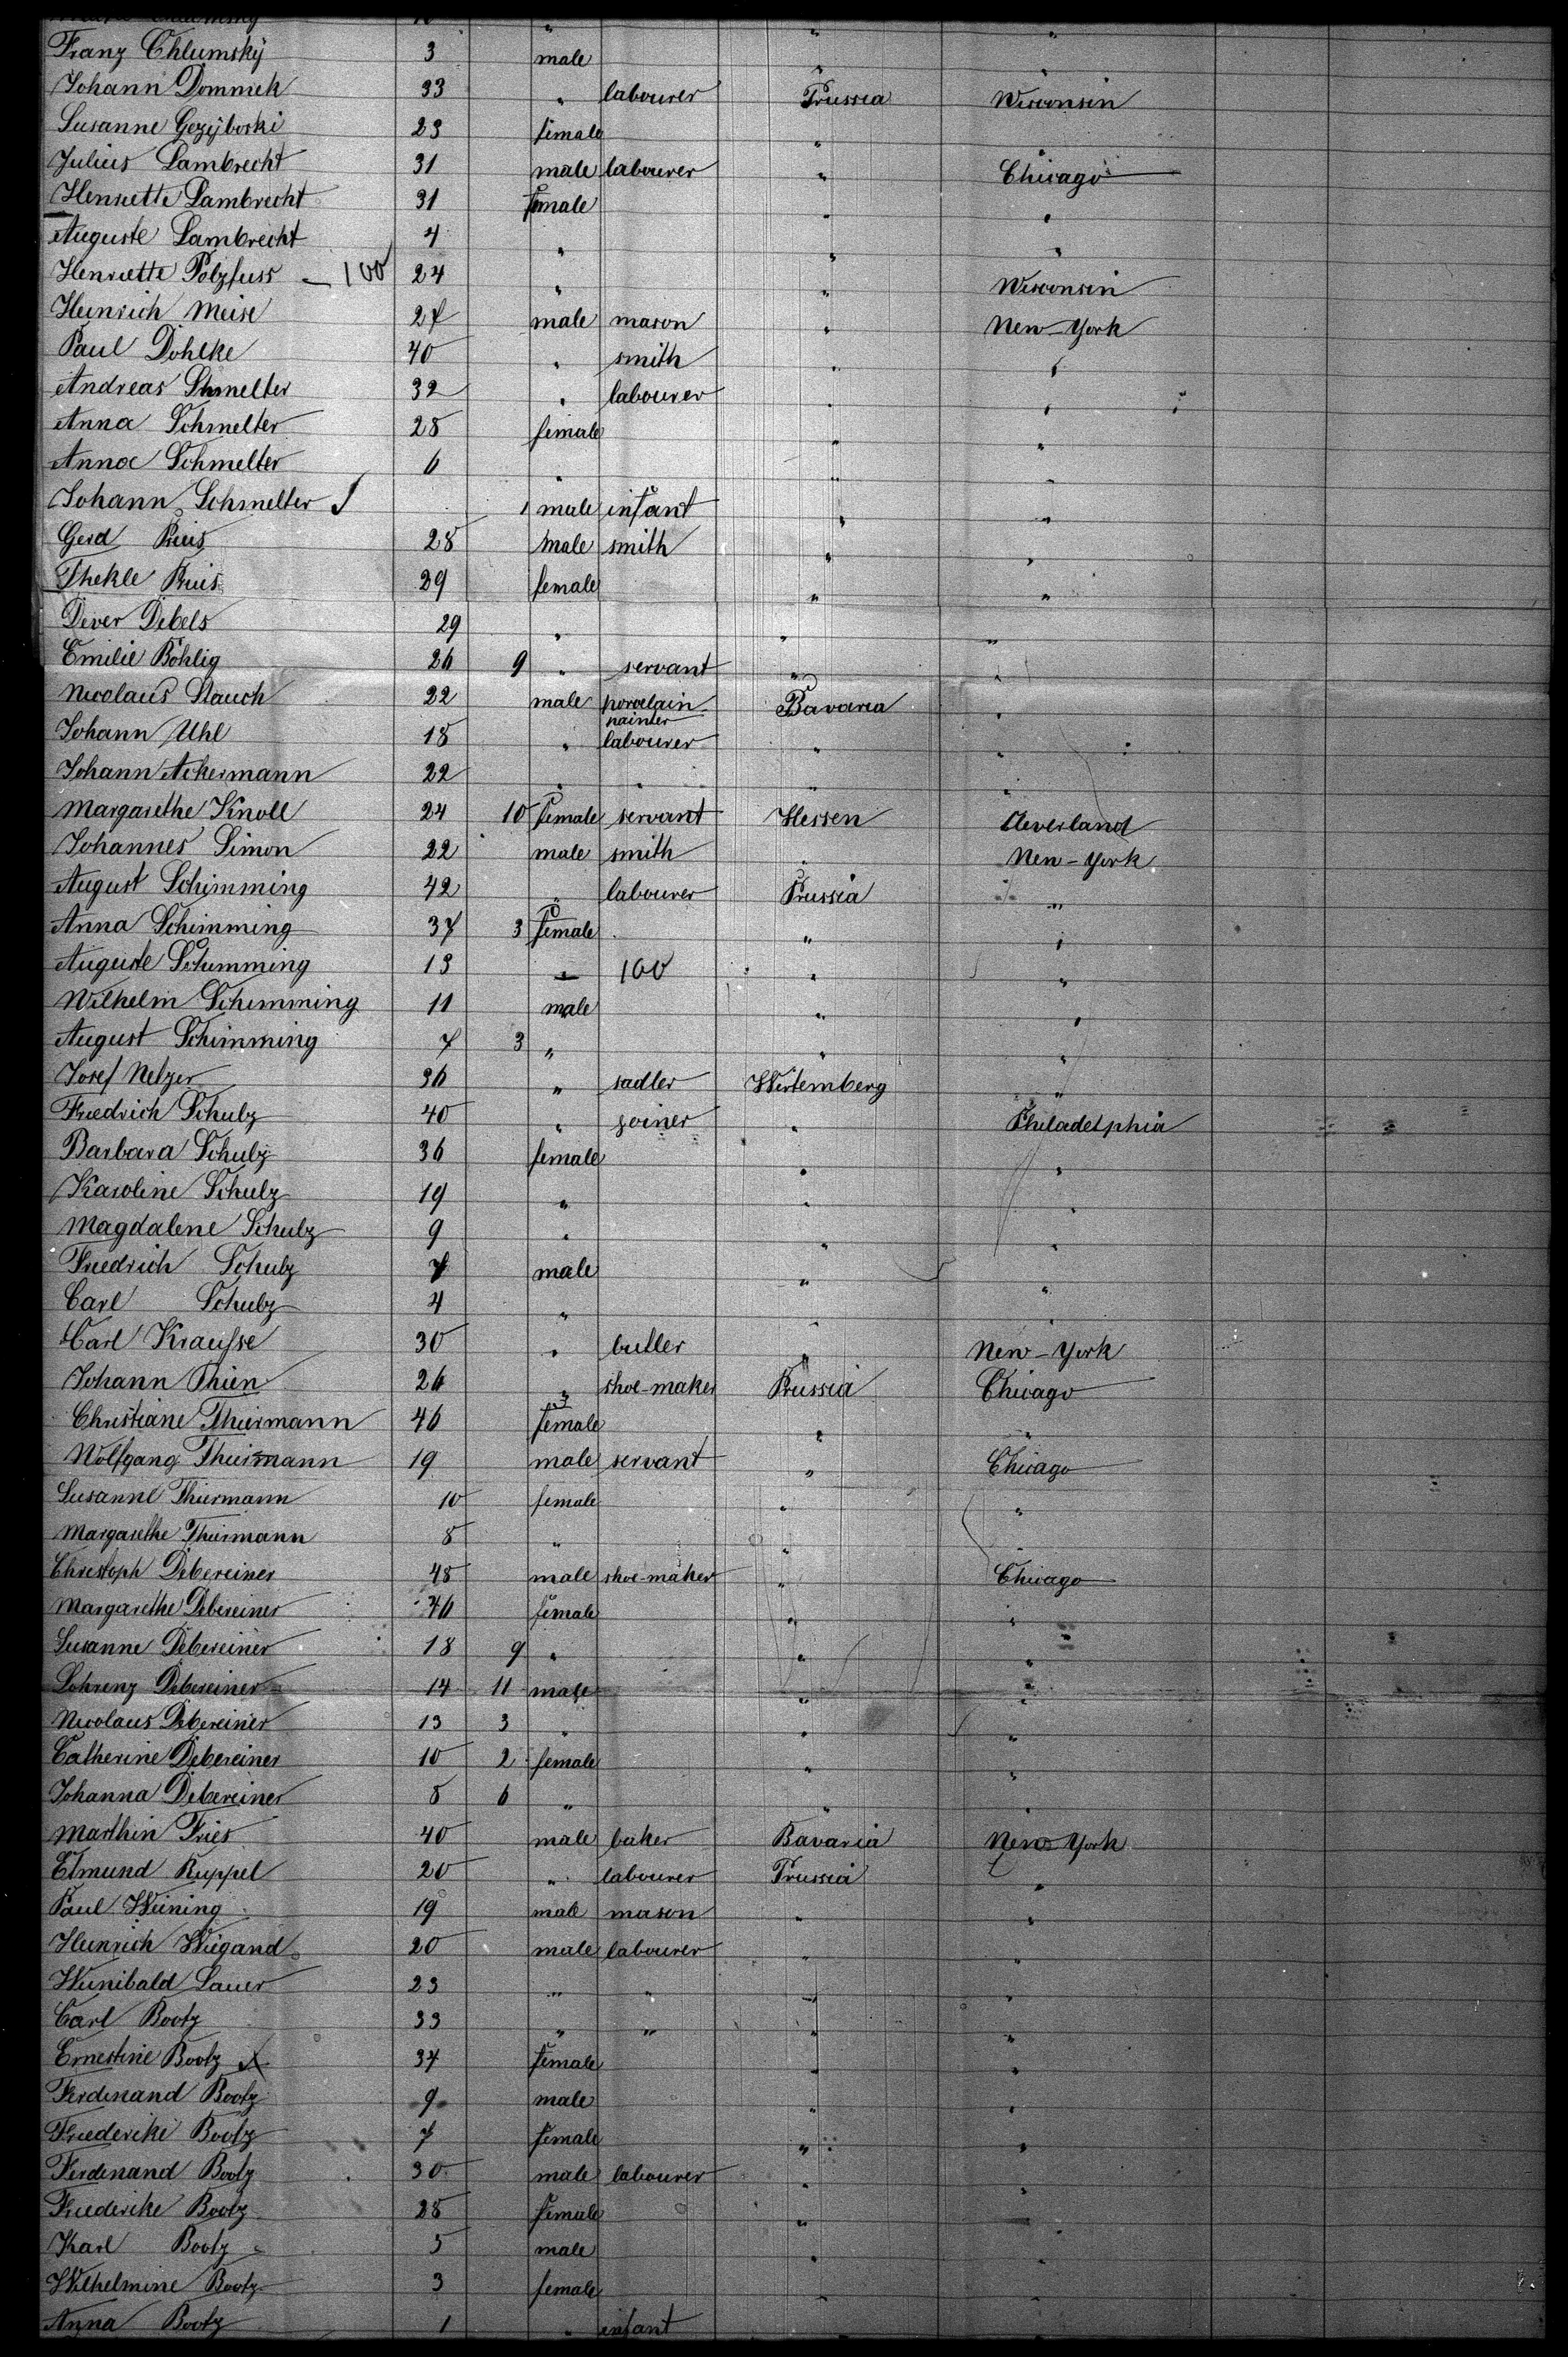 Franz Chlumský 3 male " "
Johann Dommek 33 " labourer Prussia Wisconsin
Susanne Gezÿboski 23 female " "
Julius Lambrecht 31 male labourer " Chicago
Henriette Lambrecht 31 female " "
Auguste Lambrecht 4 " " "
Henriette Polzfuss – 100 24 " " Wisconsin
Heinrich Meise 27 male mason " New-York
Paul Dohlke 40 " smith " "
Andreas Shmelter 32 " labourer " "
Anna Schmelter 28 female " "
Anna Schmelter 6 " " "
Johann Schmelter 1 male infant " "
Gerd 28 male smith " "
Thekle 29 female " "
Dever Debels 29 " " "
Emilie Böhlig 26 9 " servant " "
Nicolaus Stauch 22 male porcelain painter Bavaria "
Johann Uhl 18 " labourer " "
Johann Ackermann 22 " " " "
Margarethe Knoll 24 10 female servant Hessen Cleverland
Johannes Simon 22 male smith " New-York
August Schimming 42 " labourer Prussia "
Anna Schimming 37 3 female " "
Auguste Schimming 13 " 100 " "
Wilhelm Schimming 11 male " "
August Schimming 7 3 " " "
Josef Netzer 36 " sadler Wirtemberg "
Friedrich Schulz 40 " joiner " Philadelphia
Barbara Schulz 36 female " "
Karoline Schulz 19 " " "
Magdalene Schulz 9 " " "
Friedrich Schulz 7 male " "
Carl Schulz 4 " " "
Carl Krausse 30 " butler " New-York
Johann Thien 26 " shoe-maker Prussia Chicago
Christiane Thurmann 46 female " "
Wolfgang Thurmann 19 male servant " Chicago
Susanne Thurmann 10 female " "
Margarethe Thurmann 8 " " "
Christoph Debereiner 48 male shoe-maker " Chicago
Margarethe Debereiner 46 female " "
Susanne Debereiner 18 9 " " "
Lohrenz Debereiner 14 11 male " "
Nicolaus Debereiner 13 3 " " "
Catherine Debereiner 10 2 female " "
Johanna Debereiner 8 6 " " "
Marthin Fries 40 male baker Bavaria New-York
Edmund Ruppel 20 " labourer Prussia "
Paul Weining 19 male mason " "
Heinrich Wiegand 20 male labourer " "
Wunibald Lauer 23 " " " "
Carl Bootz 33 " " " "
Ernestine Bootz X 34 female " "
Ferdinand Bootz 9 male " "
Friederike Bootz 7 female " "
Ferdinand Bootz 30 male labourer " "
Friederike Bootz 28 female " "
Karl Bootz 5 male " "
Wilhelmine Bootz 3 female
Anna Bootz 1 " infant